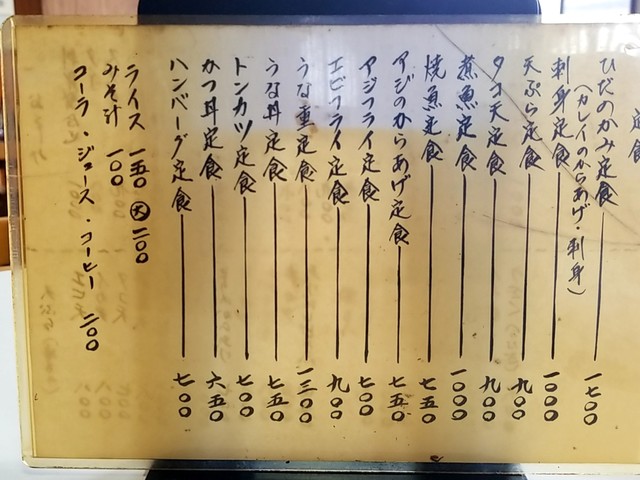 定食
ひだのかみ定食 一七〇〇
（カレイのからあげ・刺身）
刺身定食 一〇〇〇
天ぷら定食 九〇〇
タコ天定食 九〇〇
煮魚定食 一〇〇〇
焼魚定食 七五〇
アジのからあげ定食 七五〇
アジフライ定食 七〇〇
エビフライ定食 九〇〇
うな重定食 一三〇〇
うな丼定食 七五〇
トンカツ定食 七〇〇
かつ丼定食 六五〇
ハンバーグ定食 七〇〇
ライス 一五〇 大 二〇〇
みそ汁 一〇〇
コーラ・ジュース・コーヒー 二〇〇